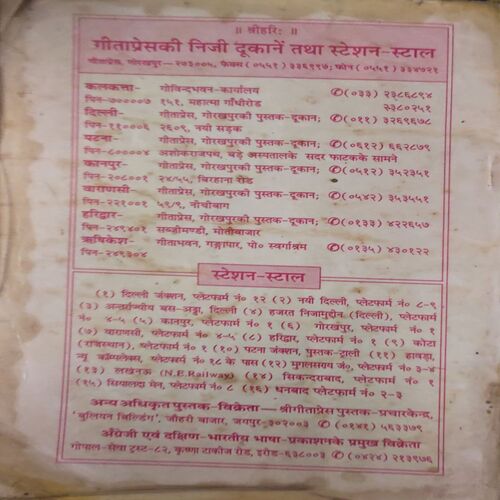 ॥ श्रीहरिः ॥
गीताप्रेसकी निजी दूकानें तथा स्टेशन-स्टाल
गीताप्रेस, गोरखपुर—२७३००५, फैक्स (०५५१) ३३६९९७; फोन (०५५१) ३३४७२१
कलकत्ता- गोविन्दभवन-कार्यालय ✆(०३३) २३८६८९४
पिन-७००००७ १५१, महात्मा गाँधीरोड २३८०२५१
दिल्ली- गीताप्रेस, गोरखपुरकी पुस्तक-दूकान; ✆(०११) ३२६९६७८
पिन-११०००६ २६०९, नयी सड़क
पटना- गीताप्रेस, गोरखपुरकी पुस्तक-दूकान; ✆(०६१२) ६६२८७९
पिन-८००००४ अशोकराजपथ, बड़े अस्पतालके सदर फाटकके सामने
कानपुर- गीताप्रेस, गोरखपुरकी पुस्तक-दूकान; ✆(०५१२) ३५२३५१
पिन-२०८००१ २४/५५, बिरहाना रोड
वाराणसी- गीताप्रेस, गोरखपुरकी पुस्तक-दूकान; ✆(०५४२) ३५३५५१
पिन-२२१००१ ५९/९, नीचीबाग
हरिद्वार- गीताप्रेस, गोरखपुरकी पुस्तक-दूकान; ✆(०१३३) ४२२६५७
पिन-२४९४०१ सब्जीमण्डी, मोतीबाजार
ऋषिकेश- गीताभवन, गङ्गापार, पो० स्वर्गाश्रम ✆(०१३५) ४३०१२२
पिन-२४९३०४
स्टेशन-स्टाल
(१) दिल्ली जंक्शन, प्लेटफार्म नं० १२ (२) नयी दिल्ली, प्लेटफार्म नं० ८-९
(३) अन्तर्राज्यीय बस-अड्डा, दिल्ली (४) हजरत निजामुद्दीन (दिल्ली), प्लेटफार्म
नं० ४-५ (५) कानपुर, प्लेटफार्म नं० १ (६) गोरखपुर, प्लेटफार्म नं० १
(७) वाराणसी, प्लेटफार्म नं० ४-५ (८) हरिद्वार, प्लेटफार्म नं० १ (९) कोटा
(राजस्थान), प्लेटफार्म नं० १ (१०) पटना जंक्शन, पुस्तक-ट्राली (११) हावड़ा,
न्यू काम्पलेक्स, प्लेटफार्म नं० १८ के पास (१२) मुगलसराय जं०, प्लेटफार्म नं० ३-४
(१३) लखनऊ (N.E.Railway) (१४) सिकन्दराबाद, प्लेटफार्म नं० १
(१५) सियालदा मेन, प्लेटफार्म नं० ८ (१६) धनबाद प्लेटफार्म नं० २-३
अन्य अधिकृत पुस्तक-विक्रेता— श्रीगीताप्रेस पुस्तक-प्रचारकेन्द्र,
'बुलियन बिल्डिंग', जौहरी बाजार, जयपुर-३०२००३ ✆ (०१४१) ५६३३७९
अँग्रेजी एवं दक्षिण-भारतीय भाषा-प्रकाशनके प्रमुख विक्रेता
गोपाल-सेवा ट्रस्ट-८२, कृष्णा टाकीज रोड, इरोड-६३८००३ ✆ (०४२४) २१३९७६